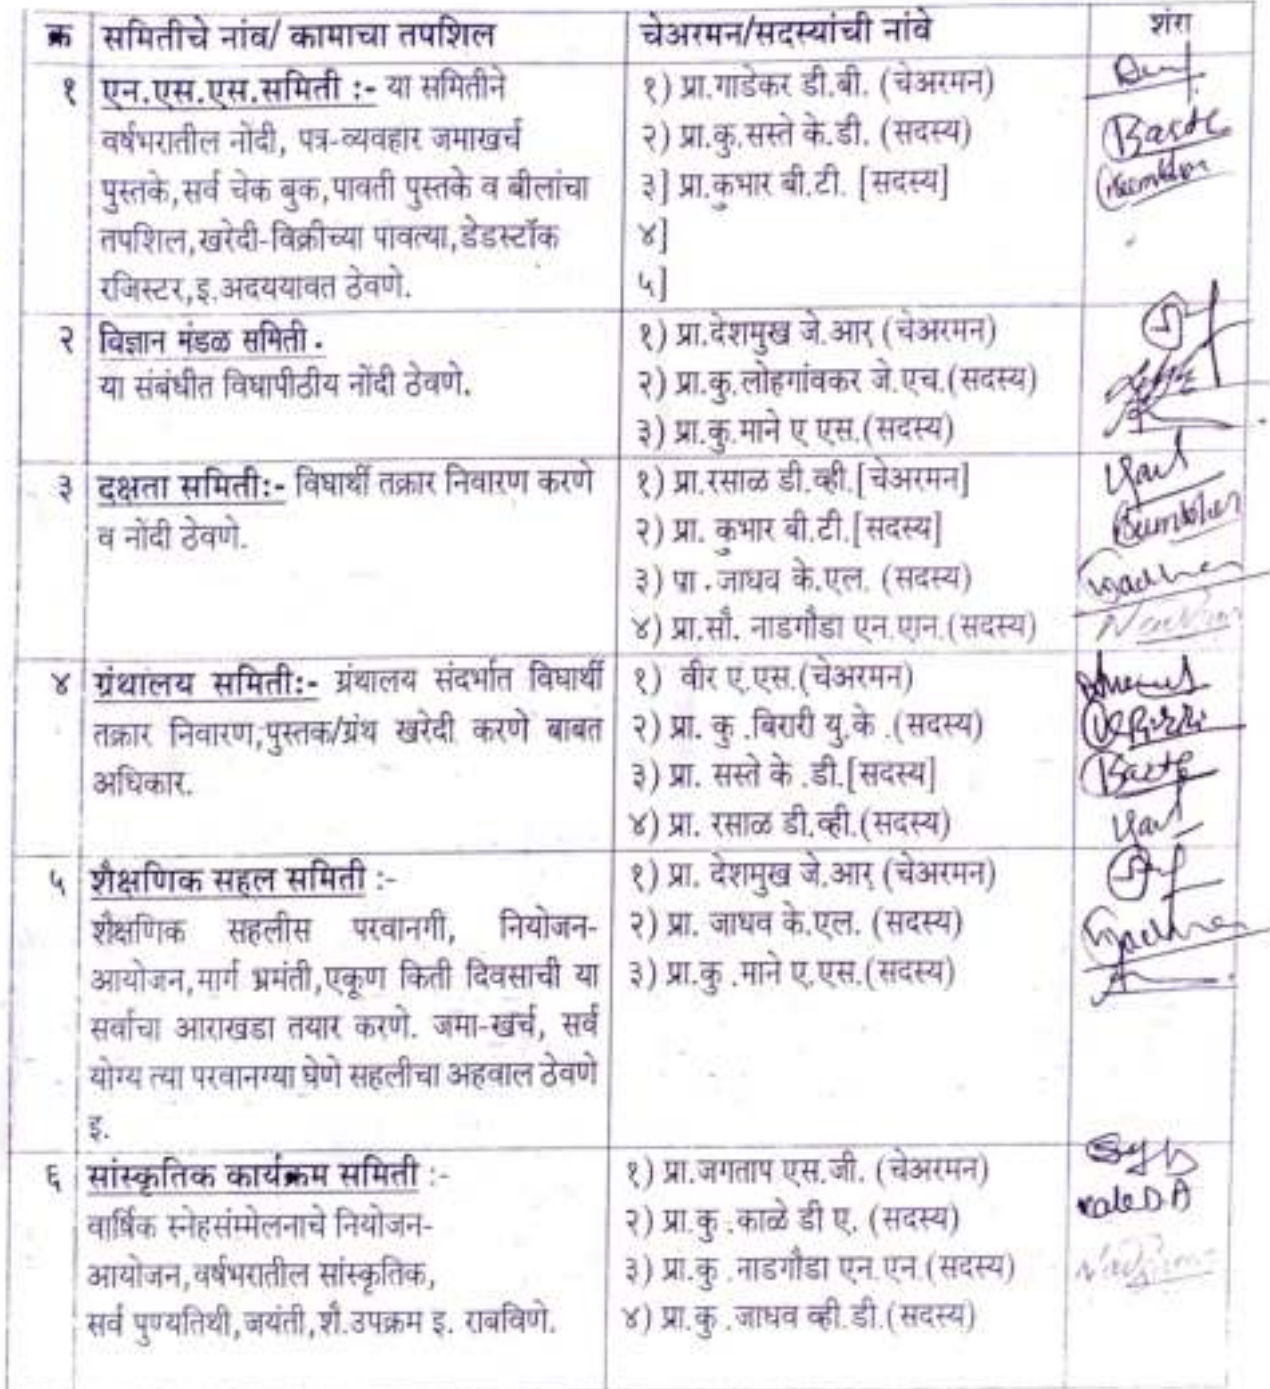 क्र समितीचे नांव/ कामाचा तपशिल चेअरमन/सदस्यांची नांवे शेरा
१ एन.एस.एस.समिती :- या समितीने
वर्षभरातील नोंदी, पत्र-व्यवहार जमाखर्च
पुस्तके,सर्व चेक बुक,पावती पुस्तके व बीलांचा
तपशिल,खरेदी-विक्रीच्या पावत्या,डेडस्टॉक
रजिस्टर,इ.अदययावत ठेवणे.
१) प्रा.गाडेकर डी.बी. (चेअरमन)
२) प्रा.कु.सस्ते के.डी. (सदस्य)
३] प्रा.कुभार बी.टी. [सदस्य]
४]
५]
२ विज्ञान मंडळ समिती .
या संबंधीत विघापीठीय नोंदी ठेवणे.
१) प्रा.देशमुख जे.आर (चेअरमन)
२) प्रा.कु.लोहगांवकर जे.एच.(सदस्य)
३) प्रा.कु.माने ए एस.(सदस्य)
३ दक्षता समितीः- विघार्थी तक्रार निवारण करणे
व नोंदी ठेवणे.
१) प्रा.रसाळ डी.व्ही.[चेअरमन]
२) प्रा. कुभार बी.टी.[सदस्य]
३) पा .जाधव के.एल. (सदस्य)
४) प्रा.सौ. नाडगौडा एन.एान.(सदस्य)
४ ग्रंथालय समितीः- ग्रंथालय संदर्भात विघार्थी
तक्रार निवारण,पुस्तक/ग्रंथ खरेदी करणे बाबत
अधिकार.
१) वीर ए.एस.(चेअरमन)
२) प्रा. कु .बिरारी यु.के .(सदस्य)
३) प्रा. सस्ते के .डी.[सदस्य]
४) प्रा. रसाळ डी.व्ही.(सदस्य)
५ शैक्षणिक सहल समिती :-
शैक्षणिक सहलीस परवानगी, नियोजन-
आयोजन,मार्ग भ्रमंती,एकूण किती दिवसाची या
सर्वाचा आराखडा तयार करणे. जमा-खर्च, सर्व
योग्य त्या परवानग्या घेणे सहलीचा अहवाल ठेवणे
इ.
१) प्रा. देशमुख जे.आर (चेअरमन)
२) प्रा. जाधव के.एल. (सदस्य)
३) प्रा.कु .माने ए.एस.(सदस्य)
६ सांस्कृतिक कार्यक्रम समिती :-
वार्षिक स्नेहसंम्मेलनाचे नियोजन-
आयोजन,वर्षभरातील सांस्कृतिक,
सर्व पुण्यतिथी,जयंती,शै.उपक्रम इ. राबविणे.
१) प्रा.जगताप एस.जी. (चेअरमन)
२) प्रा.कु .काळे डी ए. (सदस्य)
३) प्रा.कु .नाडगौडा एन.एन.(सदस्य)
४) प्रा.कु .जाधव व्ही.डी.(सदस्य)